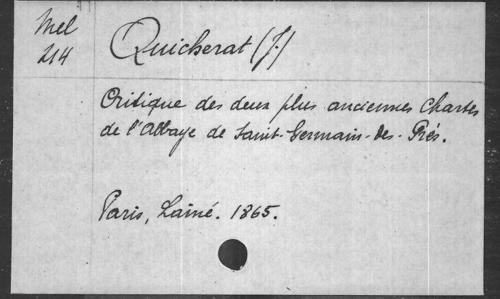 Mel
214
Quicherat (J.)
Critique des deux plus anciennes Chartes
de l'Abbaye de Saint-Germain-des-Prés.
Paris, Lainé. 1865.